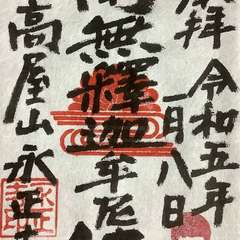 奉拝
令和五年
一月八日
南無釋迦牟尼佛
高屋山永正寺